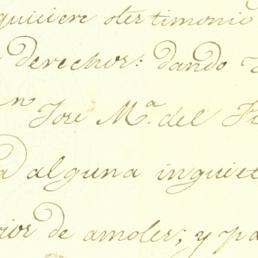 quiciere otestimonio
derechos: dando
n Jose Mª. del Fe
a alguna inquiet
rior de amoles; y pa